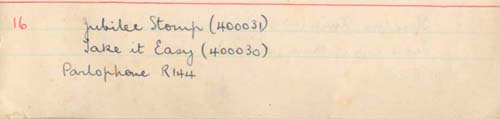 16 Jubilee Stomp (400031)
Take it Easy (400030)
Parlophone R144